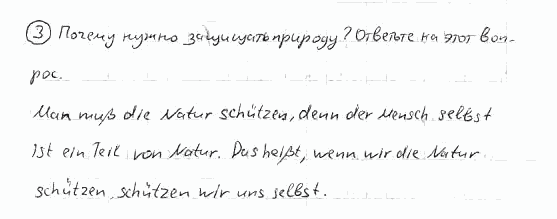 ③ Почему нужно защищать природу? Ответьте на этот воп-
рос.
Man muß die Natur schützen, denn der Mensch selbst
ist ein Teil von Natur. Das heißt, wenn wir die Natur
schützen, schützen wir uns selbst.